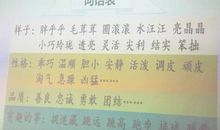 词语袋
样子：胖乎乎 毛茸茸 圆滚滚 水汪汪 亮晶晶
小巧玲珑 透亮 灵活 尖利 结实 笨拙
性格：乖巧 温顺 胆小 安静 活泼 调皮 顽皮
淘气 急躁 凶猛……
品质：善良 忠诚 勇敢 团结……
有趣的事：捉迷藏